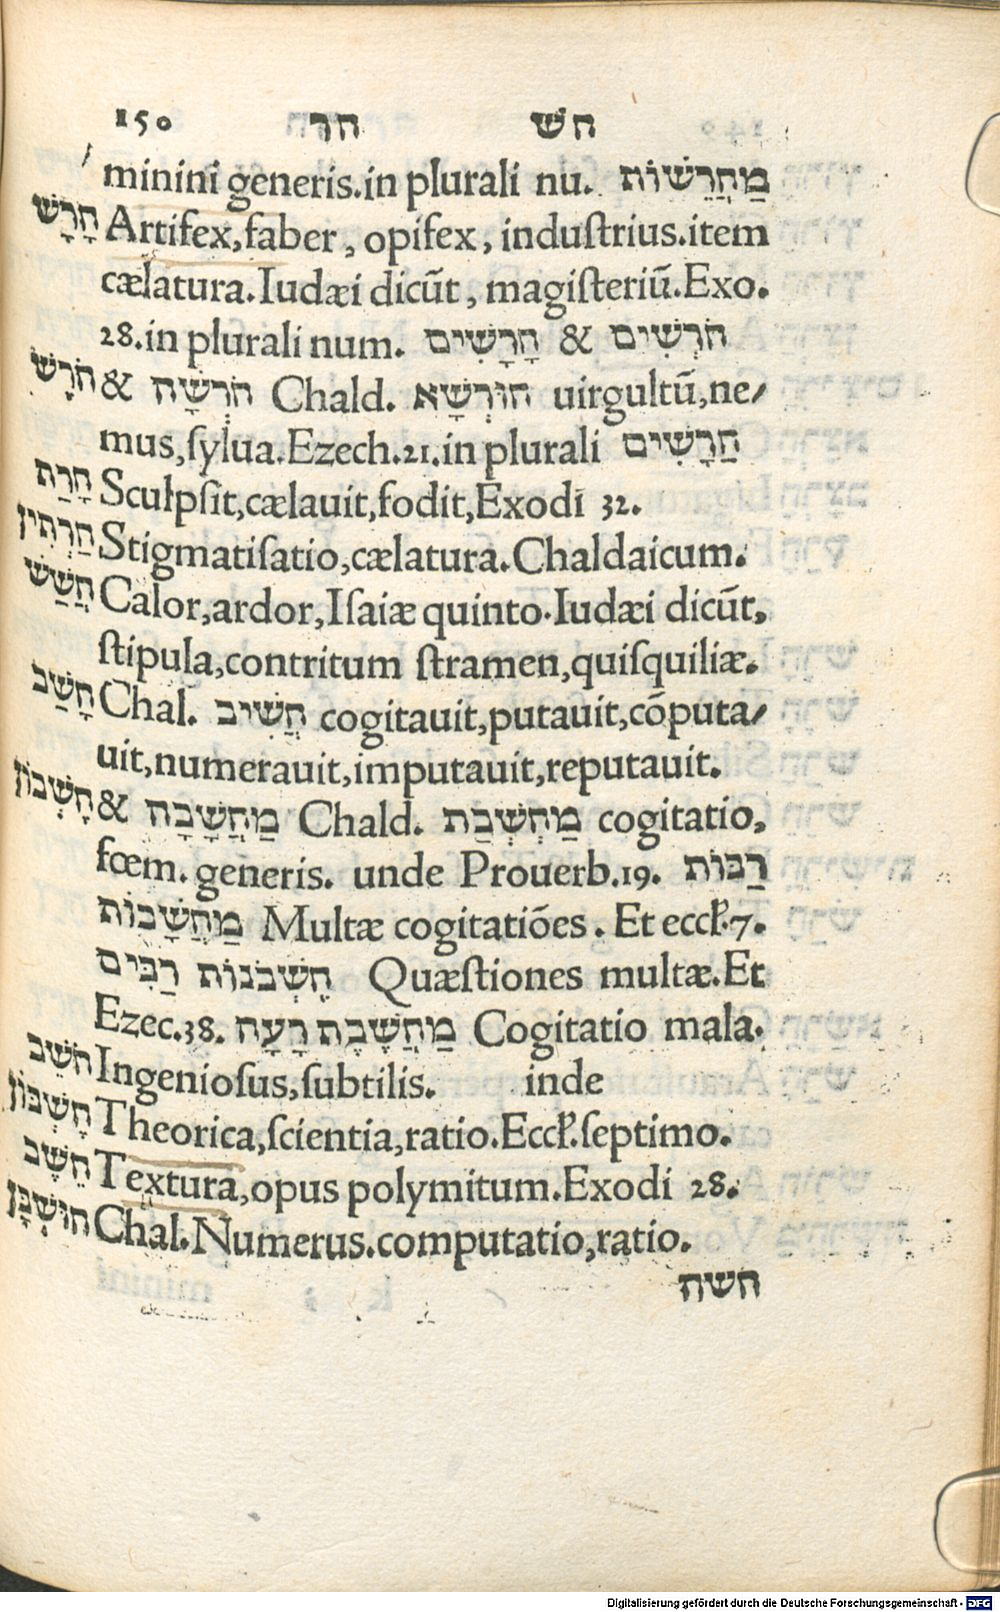 150 חר חש
minini generis.in plurali nu. מַחֲרֵשׁוֹת
חָרָשׁ Artifex,faber, opifex, induſtrius.item
cælatura.Iudæi dicūt, magiſteriū.Exo.
28.in plurali num. חָרָשִׁים & חֹרְשִׁים
& חֹרְשָׁה Chald. חוּרְשָׁא uirgultū,ne/
mus,ſylua.Ezech.21.in plurali חֲרָשִׁים
חָרַת Sculpſit,cælauit,fodit,Exodi 32.
חַרְתִּין Stigmatiſatio,cælatura.Chaldaicum.
חֲשַׁשׁ Calor,ardor,Iſaiæ quinto.Iudæi dicūt,
ſtipula,contritum ſtramen,quiſquiliæ.
חָשַׁב Chal. חֲשִׁיב cogitauit,putauit,cōputa/
uit,numerauit,imputauit,reputauit.
חֶשְׁבּוֹן & מַחֲשָׁבָה Chald. מַחְשְׁבַת cogitatio,
fœm. generis. unde Prouerb.19. רַבּוֹת
מַחֲשָׁבוֹת Multæ cogitatiōes. Et eccl.7.
חִשְּׁבֹנוֹת רַבִּים Quæſtiones multæ.Et
Ezec.38. מַחֲשֶׁבֶת רָעָה Cogitatio mala.
חֹשֵׁב Ingenioſus,ſubtilis. inde
חֶשְׁבּוֹן Theorica,ſcientia,ratio.Eccl.ſeptimo.
חֵשֶׁב Textura,opus polymitum.Exodi 28.
חוּשְׁבָּן Chal.Numerus.computatio,ratio.
חשה
Digitalisierung gefördert durch die Deutsche Forschungsgemeinschaft - DFG